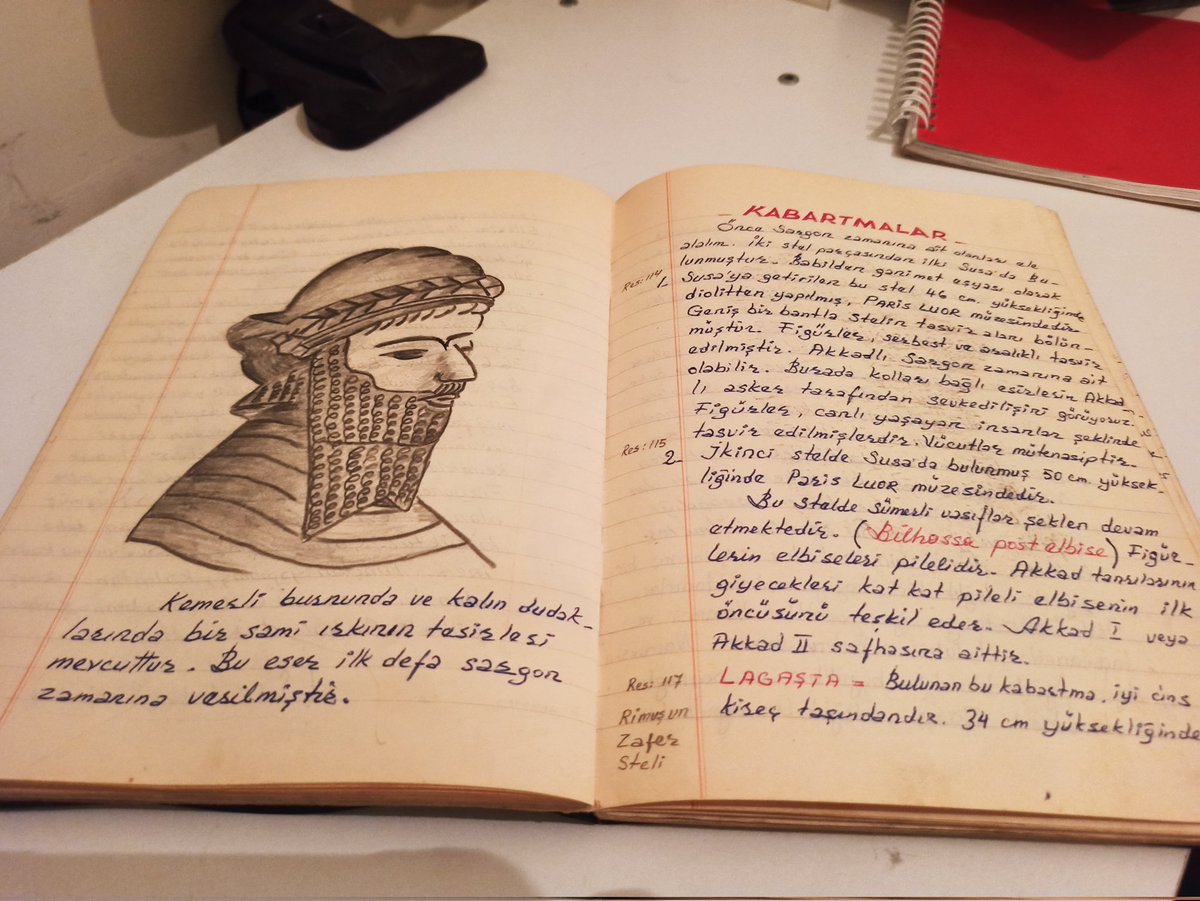 Kemerli burnunda ve kalın dudak-
larında bir sami ırkının tesirleri
mevcuttur. Bu eser ilk defa sargon
zamanına verilmiştir.
- KABARTMALAR -
Önce Sargon zamanına ait olanları ele
alalım. İki stel parçasından ilki Susa'da bu-
lunmuştur. Babilden ganimet eşyası olarak
Res: 114
1. Susa'ya getirilen bu stel 46 cm. yüksekliğinde
diolitten yapılmış, PARİS LUOR müzesindedir
Geniş bir bantla stelin tasvir alanı bölün-
müştür. Figürler, serbest ve aralıklı tasvir
edilmiştir. Akkadlı Sargon zamanına ait
olabilir. Burada kolları bağlı esirlerin Akkad-
lı asker tarafından sevkedilişini görüyoruz.
Figürler, canlı yaşayan insanlar şeklinde
tasvir edilmişlerdir. Vücutlar mütenasiptir.
Res: 115
2- İkinci stelde Susa'da bulunmuş 50 cm. yüksek-
liğinde PARİS LUOR müzesindedir.
Bu stelde sümerli vasıflar şeklen devam
etmektedir. (Bilhassa post elbise) Figür-
lerin elbiseleri pilelidir. Akkad tanrılarının
giyecekleri kat kat pileli elbisenin ilk
öncüsünü teşkil eder. Akkad I veya
Akkad II safhasına aittir.
Res: 117
LAGAŞTA = Bulunan bu kabartma, iyi cins
Rimuş'un
Zafer
Steli
kireç taşındandır. 34 cm yüksekliğinde